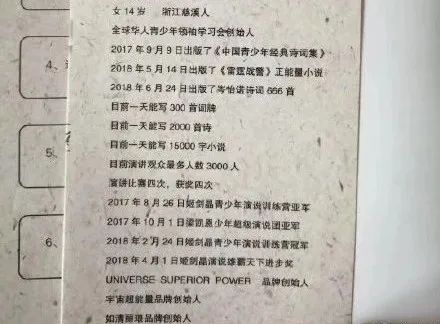 女14岁 浙江慈溪人
全球华人青少年领袖学习会创始人
2017年9月9日出版了《中国青少年经典诗词集》
2018年5月14日出版了《雷霆战警》正能量小说
2018年6月24日出版了岑怡诺诗词656首
目前一天能写300首词牌
目前一天能写2000首诗
目前一天能写15000字小说
目前演讲观众最多人数3000人
演讲比赛四次，获奖四次
2017年8月26日姬剑晶青少年演说训练营亚军
2017年10月1日梁凯恩青少年超级演说团亚军
2018年2月24日姬剑晶青少年演说训练营冠军
2018年4月1日姬剑晶演说雄霸天下进步奖
UNIVERSE SUPERIOR POWER 品牌创始人
宇宙超能量品牌创始人
如清丽琅品牌创始人
5、
6、